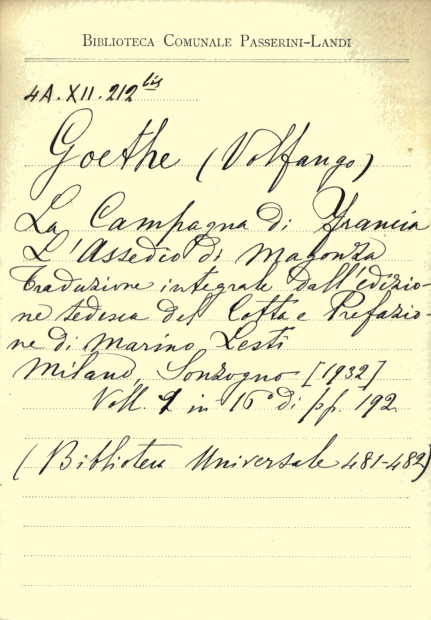 BIBLIOTECA COMUNALE PASSERINI-LANDI
4A.XII.212 bis
Goethe (Volfango)
La Campagna di Francia
L'Assedio di Magonza
Traduzione integrale dall'edizio-
ne tedesca del Cotta e Prefazio-
ne di Marino Lesti
Milano, Sonzogno [1932]
Voll. 1 in 16° di pp. 192.
(Biblioteca Universale 481-482)